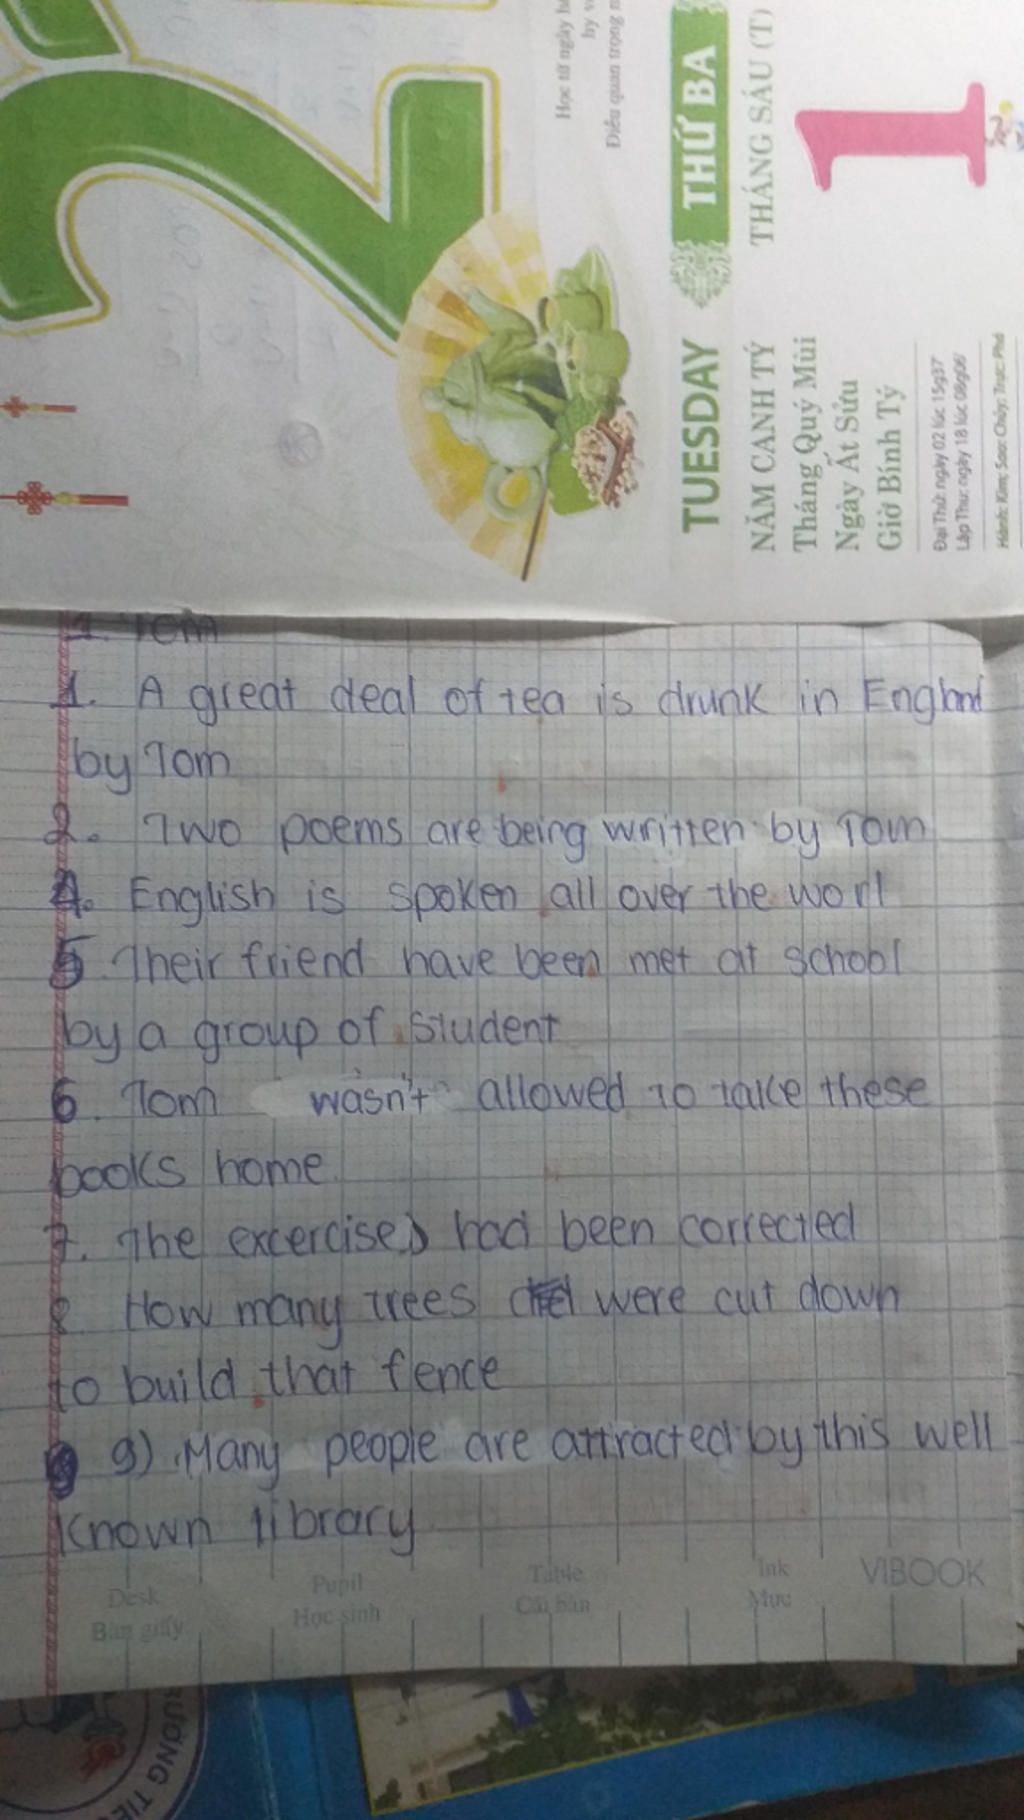 Học từ ngày
Điều quan trọng
THỨ BA
THÁNG SÁU (T)
1
TUESDAY
NĂM CANH TÝ
Tháng Quý Mùi
Ngày Ất Sửu
Giờ Bính Tý
Đại Thử: ngày 02 lúc 15g37
Lập Thu: ngày 18 lúc 08g06'
Hành: Kim; Sao: Chủy; Trực: Phá
Tom
1. A great deal of tea is drunk in England
by Tom
2. Two poems are being written by Tom
4. English is spoken all over the worl
5. Their friend have been met at school
by a group of student
6. Tom wasn't allowed to take these
books home.
7. The excercises had been corrected
8 How many trees were cut down
to build that fence
9) Many people are attracted by this well
known library
Desk Pupil Table Ink VIBOOK
Bàn giấy Học sinh Cái bàn Mực